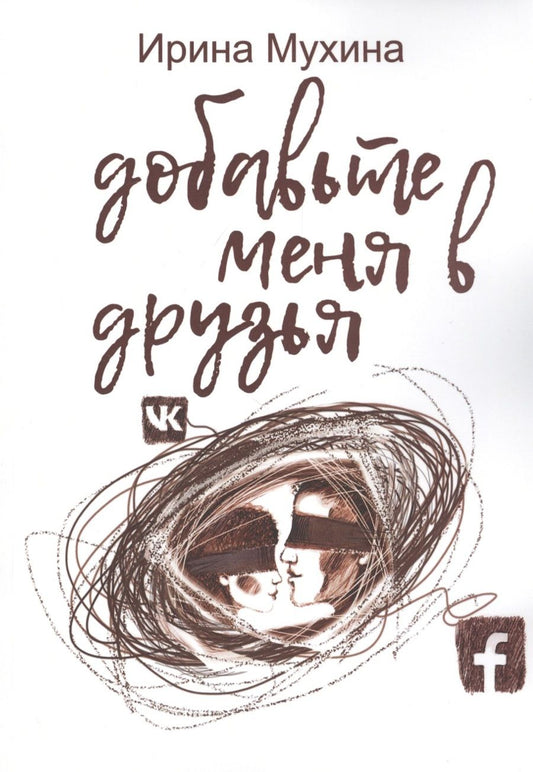 Ирина Мухина
добавьте
меня в
друзья
VK
f